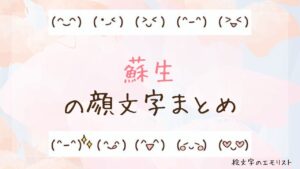 (^‿^) (•ᴗ<) (>ᴗ<) (^−^) (>▿<)
蘇生
の顔文字まとめ
(^−^)✨ (^ᴗ^) (^▿^) (◡‿◡) (♡ᴗ♡)
絵文字のエモリスト